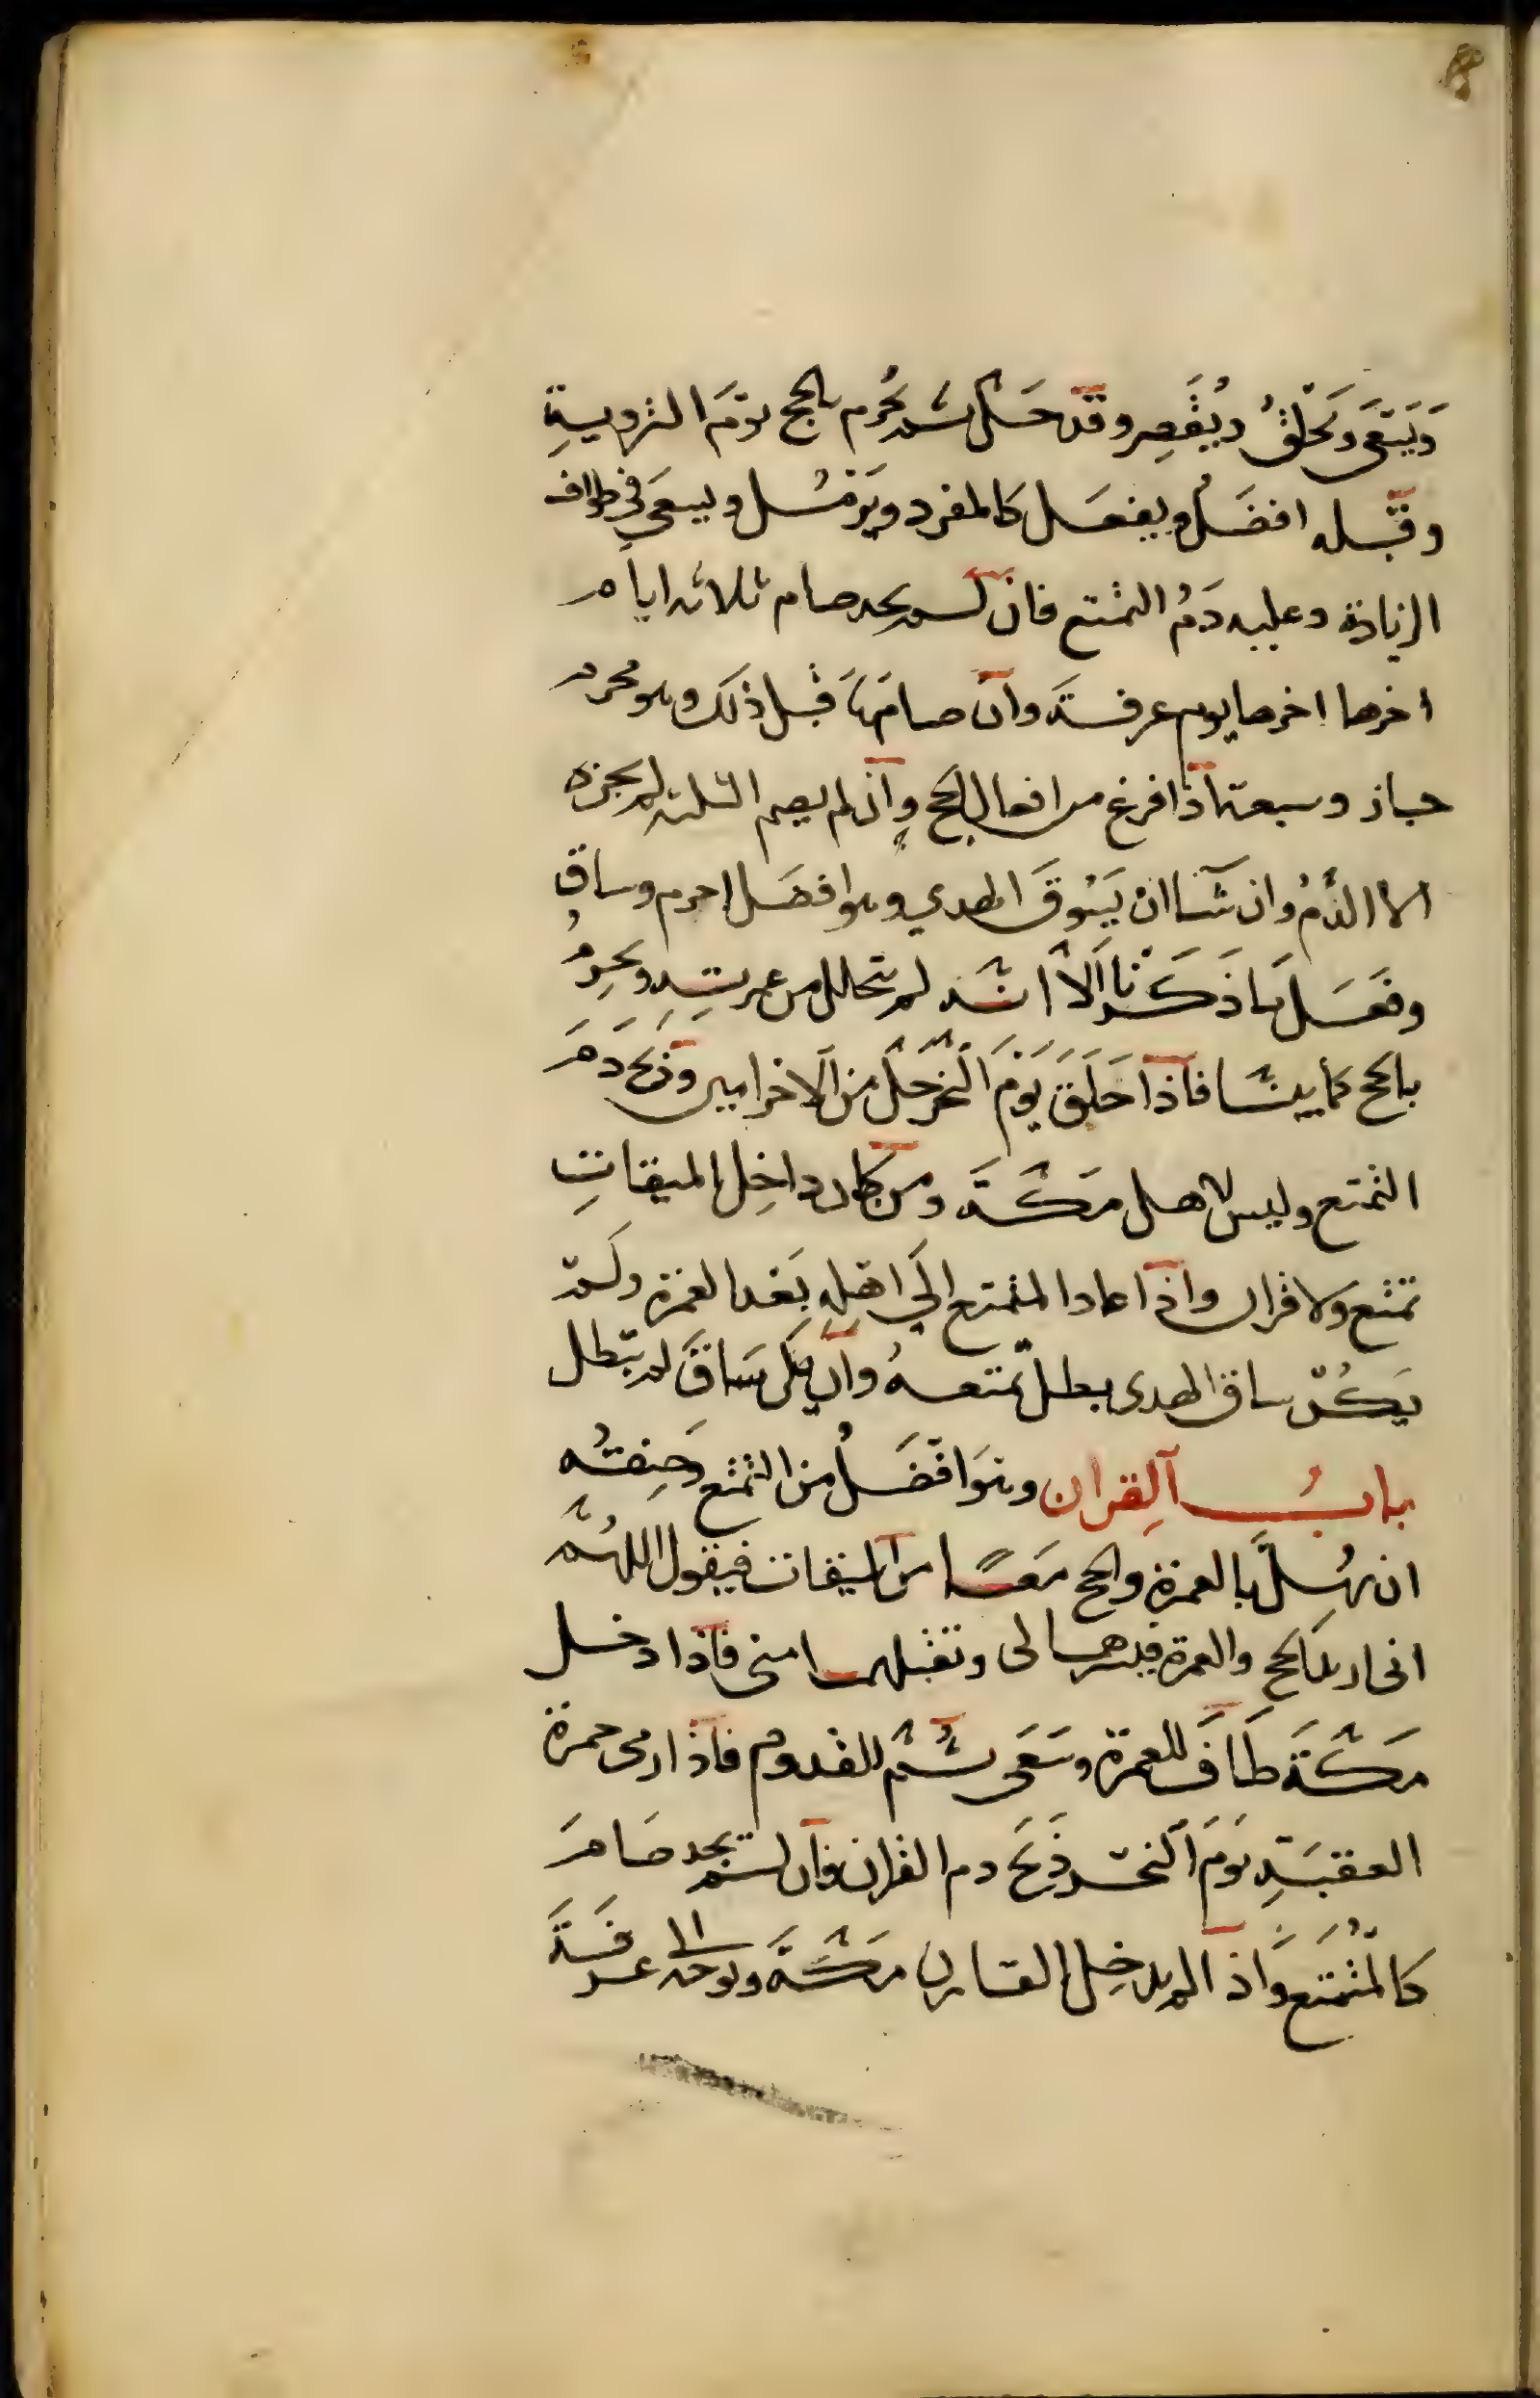 وَيَسْعَى وَيَحْلِقُ ويُقَصِر وقد حَلَّ ثم يُحْرِم بالحج يَوْمَ الترويةِ
وقَبله افضَلُ ويفعل كالمفرد ويَرْمُل ويسعَى في طواف
الزيادة وعليه دَمُ التمتع فان لم يجد صام ثلاثه ايام
اخرها اخرها يوم عرفة وان صامَهَا قبل ذلك وهو محرم
جاز وسبعة اذا فرغ من افعال الحج وان لم يصم الثلثه لم يجزه
الا الدَّمُ وان شآ ان يَسُوقَ الهدي وهو افضَل احرم وساق
وفعَل مَا ذَكَرْنَا اَلاَّ انَّه لم يتحلل من عمرتِهِ ويُحرِمُ
بالحج كما بينَّا فاذا حَلَقَ يَوْمَ النَّحْرِ حَلَّ مِنَ الاخرامين وذبح دمَ
التمتع وليس لاهل مَكَّةَ ومن كان داخِل الميقاتِ
تمتع ولا قران واذا عاد المتمتع اِلَى اهْلِهِ بَعْد العُمرَة ولَم
يَكُنْ ساق الهدى بطل تمتعهُ وان يكن سَاقَ لم يَبطل
بابُ اَلقِران وهوَ افْضَلُ من التمتع وصِفتُه
ان يُهِلَّ بالعمرة والحج مَعًا من الميقات فيقول اللهُمَّ
انى اريد الحج والعمرة فيسرهما لى وتقبلهما منى فاذا دخل
مَكَّةَ طَافَ للعمرة وسَعَى ثُمَّ للقدوم فاذا رمى جمرة
العقبَةِ يَوْمَ النحر ذَبَحَ دم القران فان لم يجد صَامَ
كالمُتَمَتِّع وَاذا لم يدخِل القارن مَكَّةَ وتوجه الى عرفَةَ